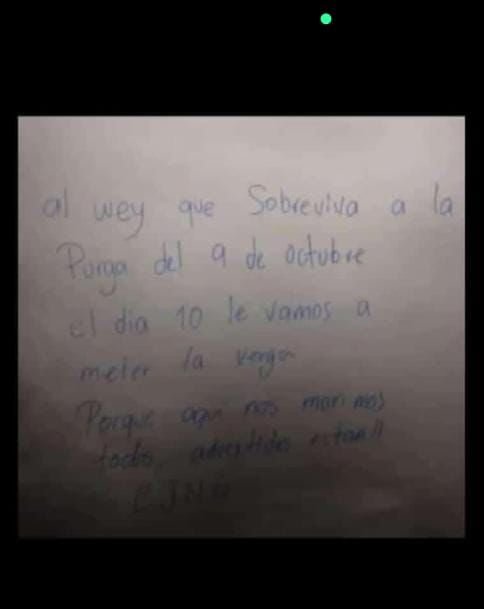 al wey que Sobreviva a la
Purga del 9 de octubre
el dia 10 le vamos a
meter la verga
Porque aquí nos morimos
todos, advertidos estan!!
CJNG